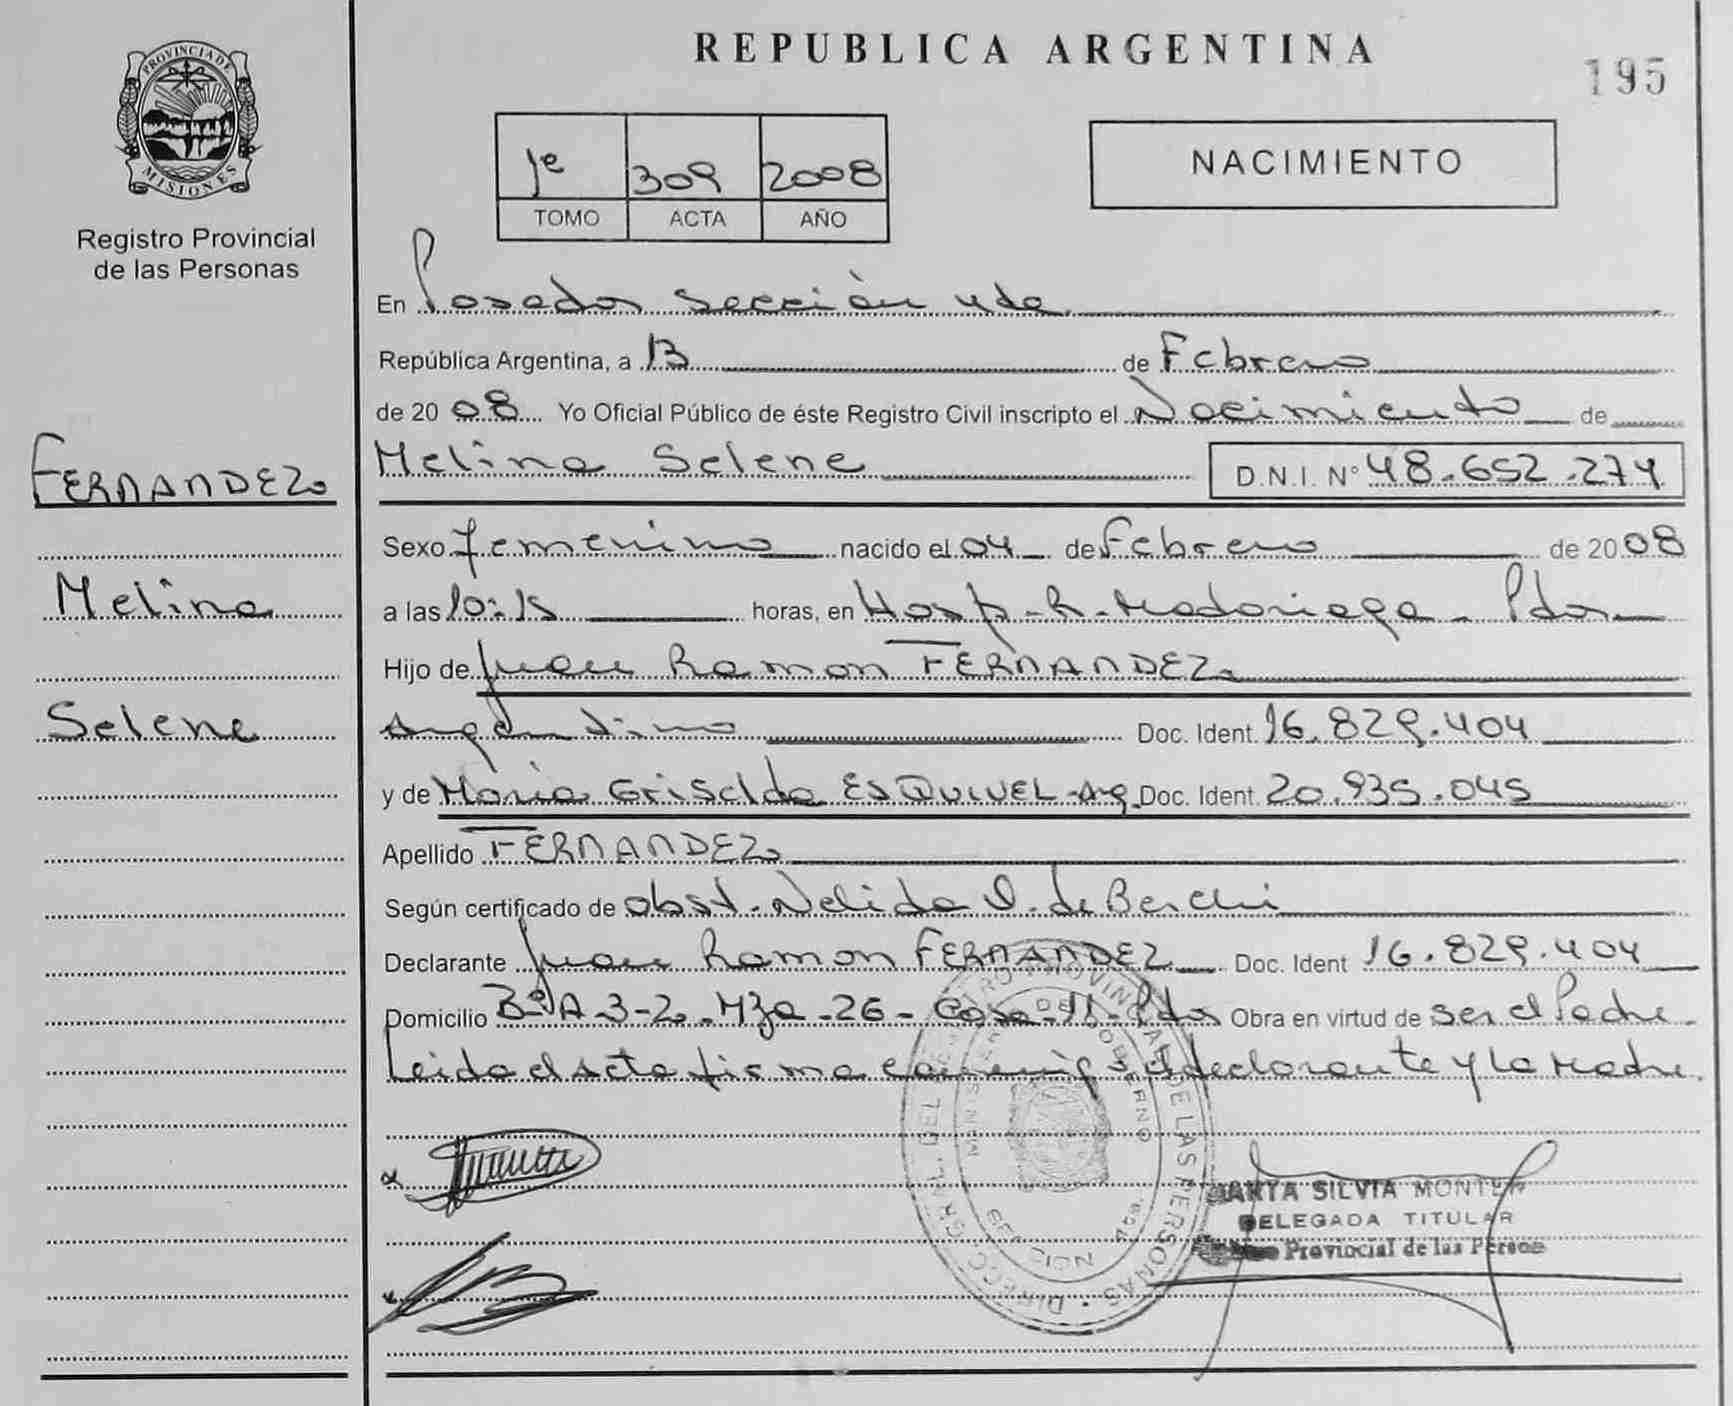 REPUBLICA ARGENTINA
195
PROVINCIA DE
MISIONES
Registro Provincial
de las Personas
1e 309 2008
TOMO ACTA AÑO
NACIMIENTO
En Posadas Sección 4ta
República Argentina, a 13 de Febrero
de 2008 Yo Oficial Público de éste Registro Civil inscripto el Nacimiento de
FERNANDEZ
Melina Selene D.N.I. Nº 48.652.274
Sexo femenino nacido el 04 de Febrero de 2008
Melina
a las 10:15 horas, en Hosp-R-Madariaga - Pdas
Hijo de Juan Ramon FERNANDEZ
Selene
Argentino Doc. Ident. 16.829.404
y de Maria Griselda ESQUIVEL-Arg. Doc. Ident. 20.935.045
Apellido FERNANDEZ
Según certificado de obst. Nelida D. de Berchi
Declarante Juan Ramon FERNANDEZ Doc. Ident 16.829.404
Domicilio Bº A-3-2-Mza-26-Casa-11-Pdas Obra en virtud de ser el Padre
Leida el acta firma conmigo el declarante y la Madre.
SILVIA
DELEGADA TITULAR
Provincial de las